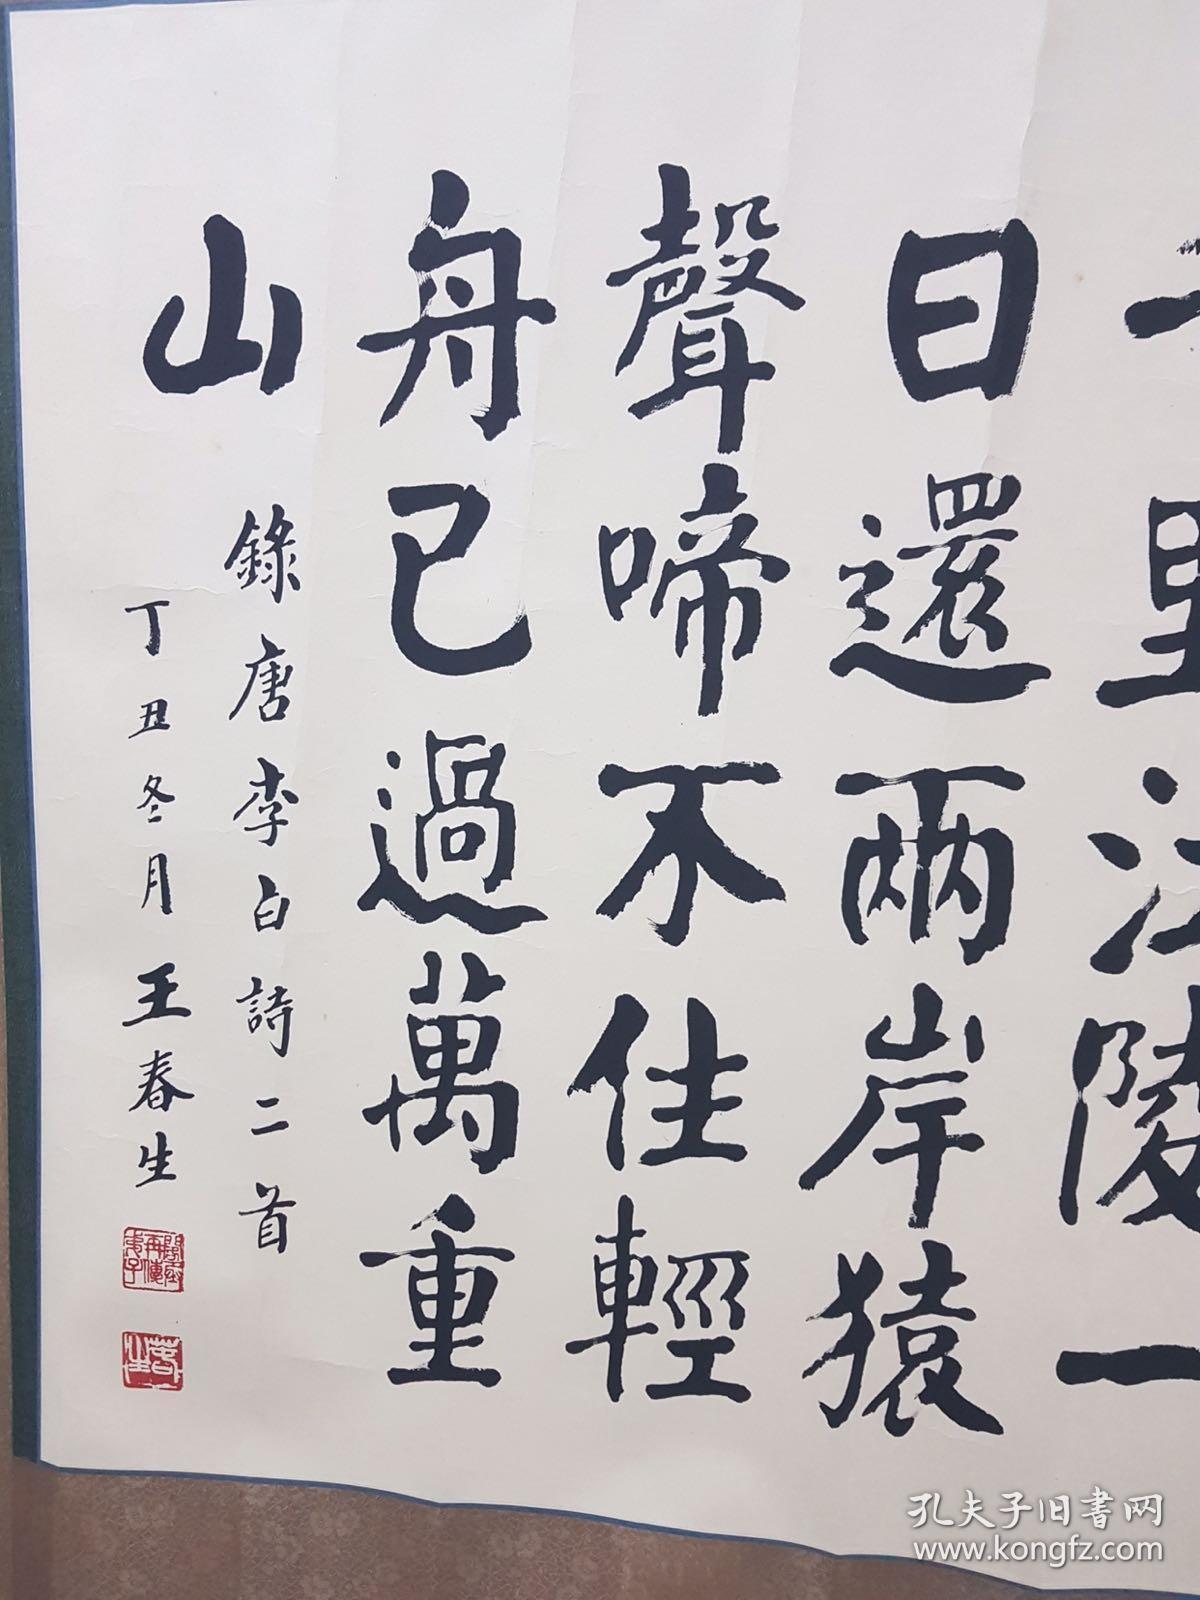 千里江陵一
日還兩岸猿
聲啼不住輕
舟已過萬重
山
錄唐李白詩二首
丁丑冬月王春生
孔夫子旧书网
www.kongfz.com